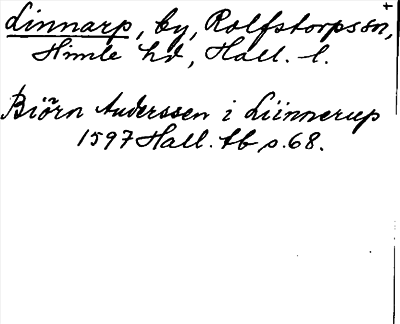 Linnarp, by, Rolfstorps sn,
Himle hd, Hall. l.
Biörn Anderssen i Liinnerup
1597 Hall. tb s. 68.